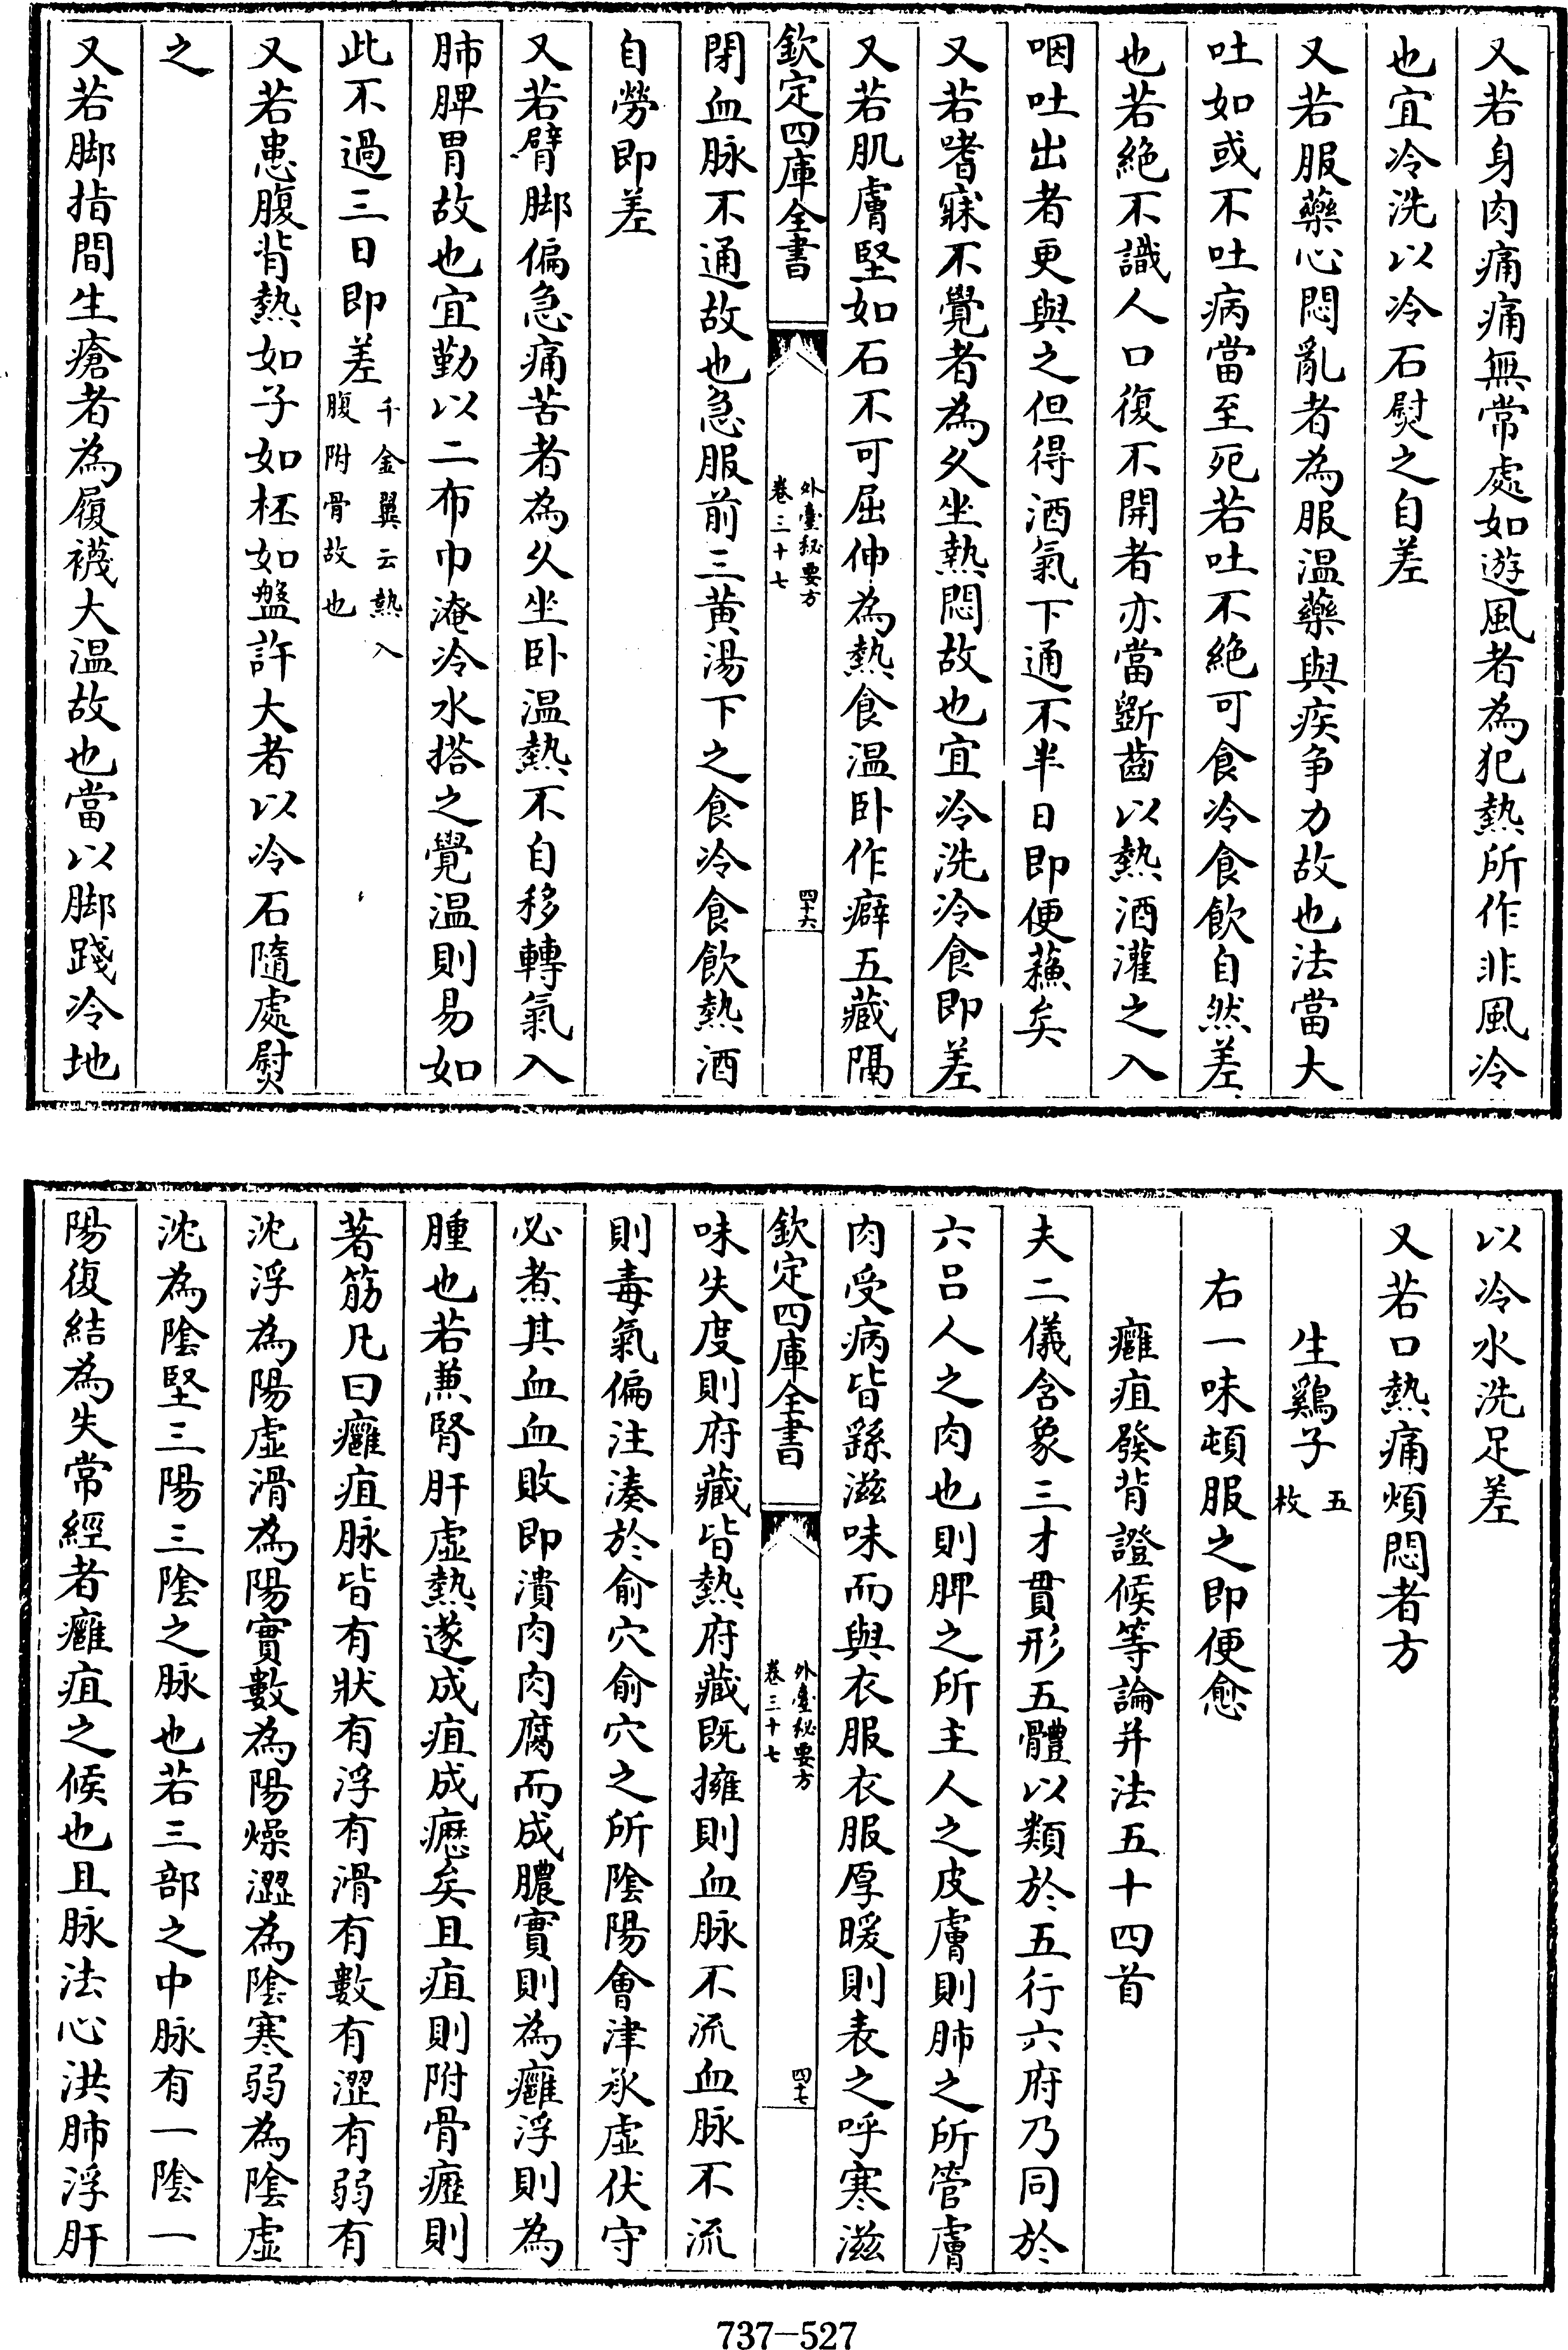 又若身肉痛痛無常處如遊風者為犯熱所作非風冷
也宜冷洗以冷石熨之自差
又若服藥心悶亂者為服温藥與疾爭力故也法當大
吐如或不吐病當至死若吐不絶可食冷食飲自然差
也若絶不識人口復不開者亦當斷齒以熱酒灌之入
咽吐出者更與之但得酒氣下通不半日即便蘓矣
又若嗜寐不覺者為久坐熱悶故也宜冷洗冷食即差
又若肌膚堅如石不可屈伸為熱食温卧作癖五藏隔
欽定四庫全書
外臺秘要方
卷三十七
四十六
閉血脉不通故也急服前三黄湯下之食冷食飲熱酒
自勞即差
又若臂脚偏急痛苦者為久坐卧温熱不自移轉氣入
肺脾胃故也宜勤以二布巾淹冷水搭之覺温則易如
此不過三日即差千金翼云熱入腹附骨故也
又若患腹背熱如子如柸如盤許大者以冷石隨處熨
之
又若脚指間生瘡者為履襪大温故也當以脚踐冷地
以冷水洗足差
又若口熱痛煩悶者方
生鷄子五枚
右一味頓服之即便愈
癰疽發背證候等論并法五十四首
夫二儀含象三才貫形五體以類於五行六府乃同於
六吕人之肉也則脾之所主人之皮膚則肺之所管膚
肉受病皆繇滋味而與衣服衣服厚暖則表之呼寒滋
欽定四庫全書
外臺秘要方
卷三十七
四十七
味失度則府藏皆熱府藏既擁則血脉不流血脉不流
則毒氣偏注湊於俞穴俞穴之所陰陽會津承虛伏守
必煮其血血敗即潰肉肉腐而成膿實則為癰浮則為
腫也若兼腎肝虛熱遂成疽成癧矣且疽則附骨癧則
著筋凡曰癰疽脉皆有狀有浮有滑有數有澀有弱有
沈浮為陽虛滑為陽實數為陽燥澀為陰寒弱為陰虛
沈為陰堅三陽三陰之脉也若三部之中脉有一陰一
陽復結為失常經者癰疽之候也且脉法心洪肺浮肝
737-527